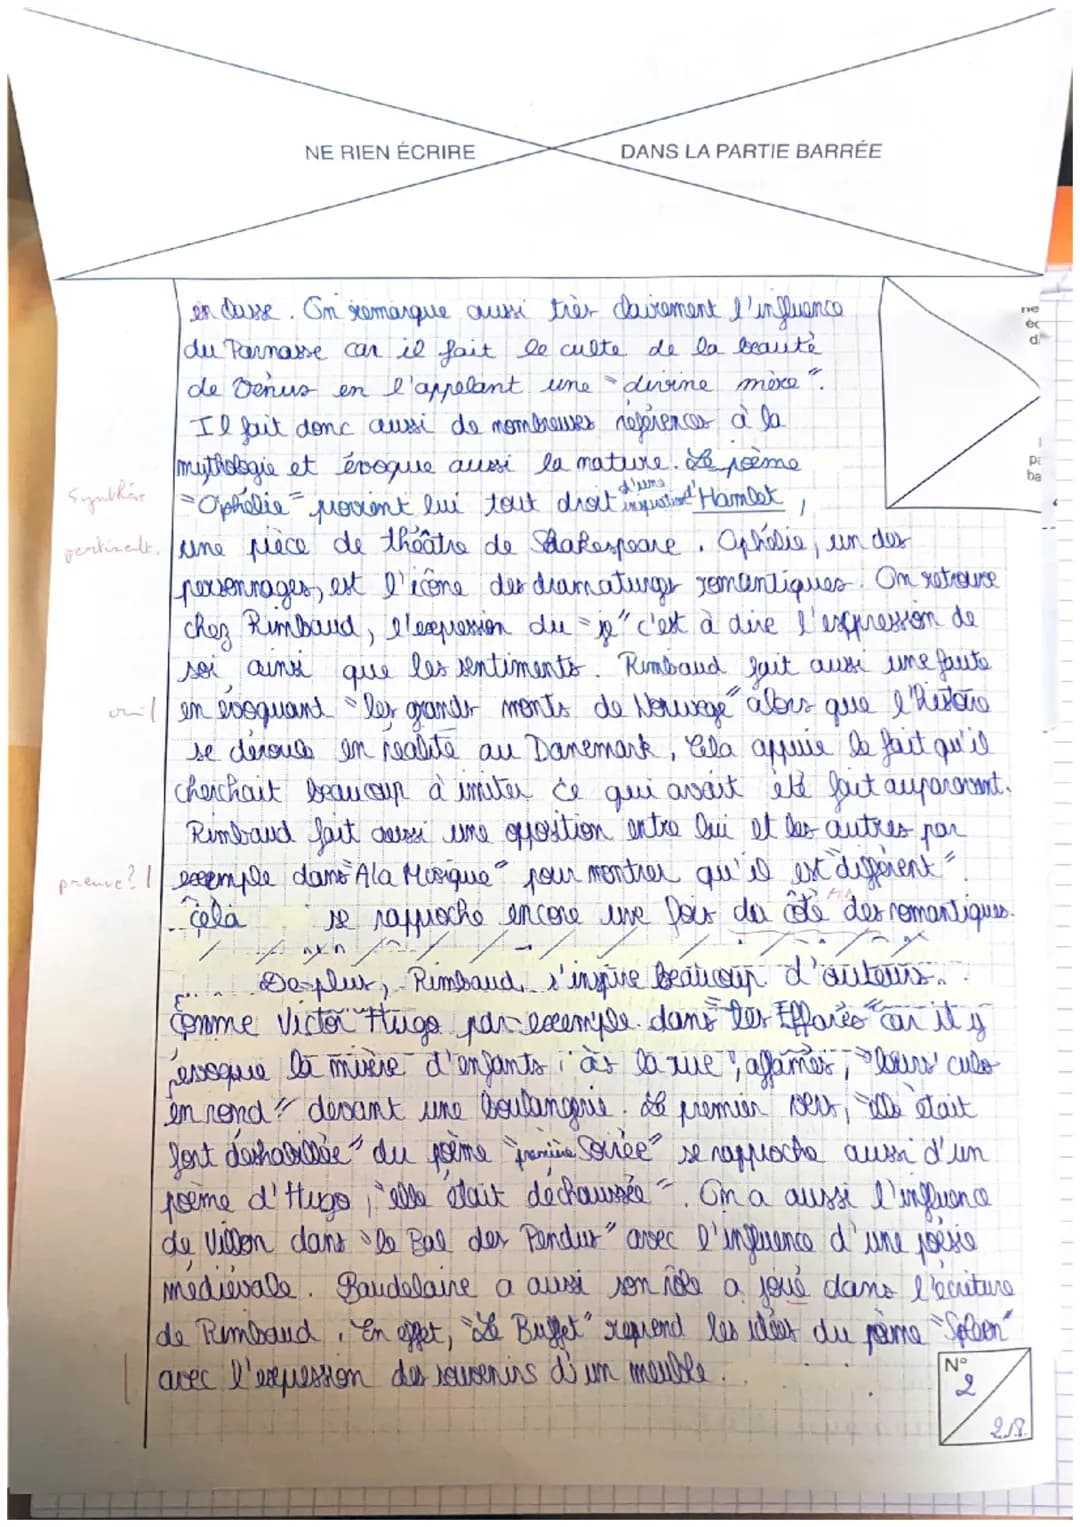 NE RIEN ÉCRIRE DANS LA PARTIE BARRÉE
en classe. On remarque aussi très clairement l'influence
du Parnasse car il fait le culte de la beauté
de Vénus en l'appelant une "divine mère".
Il fait donc aussi de nombreuses références à la
mythologie et évoque aussi la nature. Le poème
Synthèse
"Ophélie" provient lui tout droit d'une inspiration d'Hamlet,
pertinente.
une pièce de théâtre de Shakespeare. Ophélie, un des
personnages, est l'icône des dramaturges romantiques. On retrouve
chez Rimbaud, l'expression du "je" c'est à dire l'expression de
soi ainsi que les sentiments. Rimbaud fait aussi une faute
oui
en évoquant "les grands monts de Norvège" alors que l'histoire
se déroule en réalité au Danemark, Cela appuie le fait qu'il
cherchait beaucoup à imiter ce qui avait été fait auparavant.
Rimbaud fait aussi une opposition entre lui et les autres par
preuve?
exemple dans "A la Musique" pour montrer qu'il est "différent".
cela se rapproche encore une fois du côté des romantiques.
De plus, Rimbaud, s'inspire beaucoup d'auteurs
comme Victor Hugo par exemple dans "les Effarés" car il y
évoque la misère d'enfants la rue, affamés, "leurs culs
en rond" devant une boulangerie. Le premier vers, "elle était
fort déshabillée" du poème "première Soirée" se rapproche aussi d'un
poème d'Hugo, "elle était déchaussée". On a aussi l'influence
de Villon dans "le Bal des Pendus" avec l'influence d'une poésie
médiévale. Baudelaire a aussi son rôle a joué dans l'écriture
de Rimbaud. En effet, "Le Buffet" reprend les idées du poème "Spleen"
avec l'expression des souvenirs d'un meuble.
N°
2